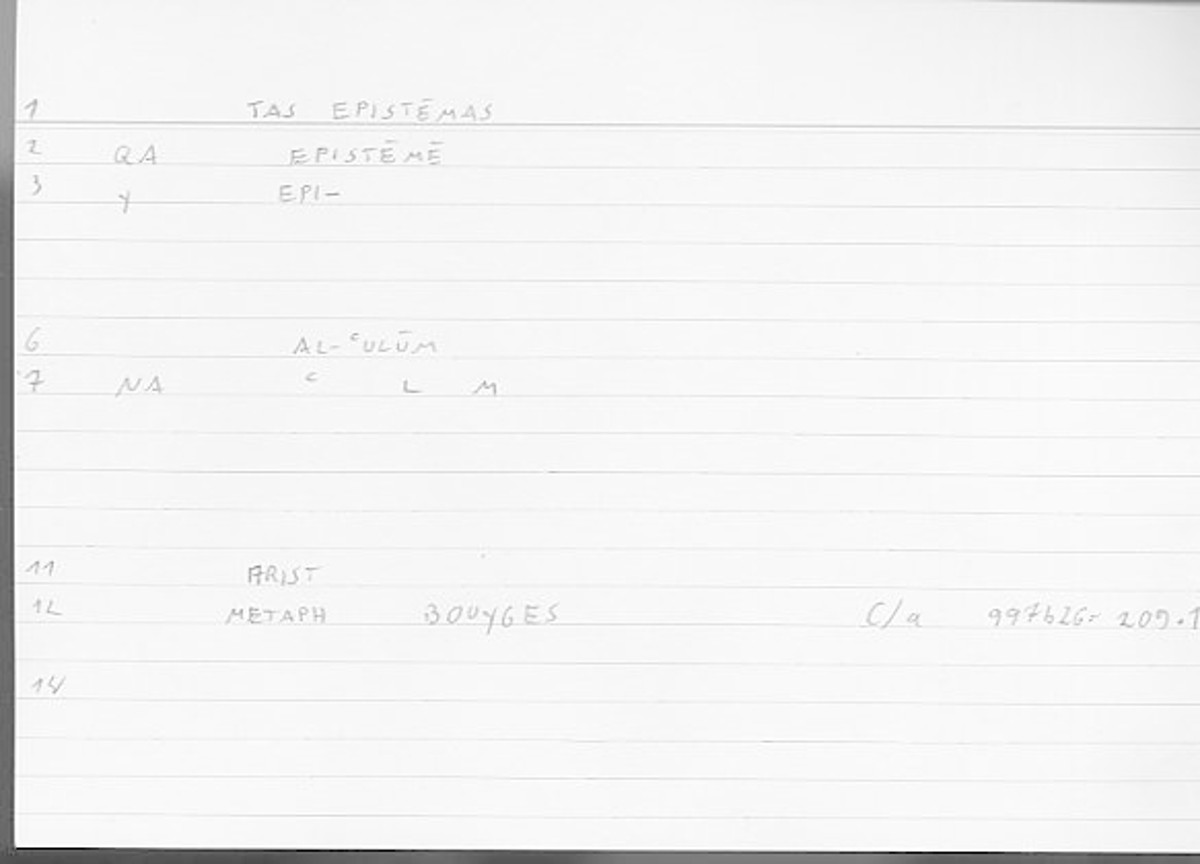 1 TAS EPISTĒMAS
2 QA EPISTĒMĒ
3 Y EPI-
6 AL-ʿULŪM
7 NA ʿ L M
11 ARIST
12 METAPH BOUYGES C/a 997b26= 209.1
14